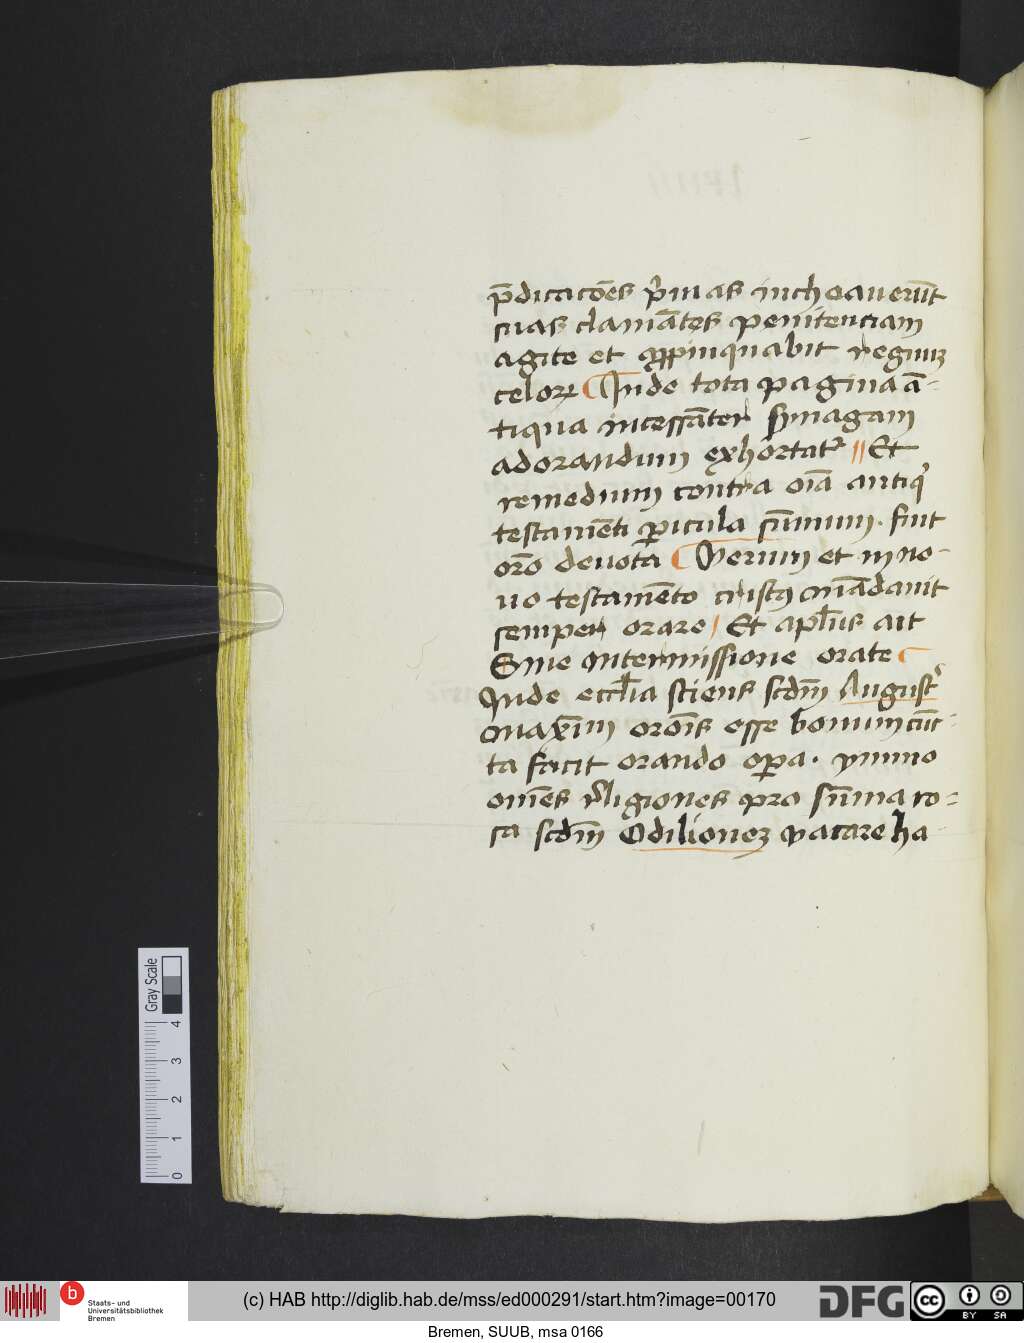 p̄dicacōes p̓mas inchoauerūt
suas clamātes penitenciam
agite et appinquabit regnuꝫ
celoꝝ Inde tota pagina ā-
tiqua incessāter synagam
adorandum exhortat᷑ Et
remedium contra oīa antiq̓
testamēti ꝑicula sūmum . fuit
orō deuota Verum et in no-
uo testamēto cristꝯ mādauit
semper orare Et apl̄us ait
Sine intermissione orate
Inde eccl̄ia sciens scdm̄ August̓
maxīm orōis esse bonum cūc-
ta facit orando oꝑa . ymmo
om̄es r̓ligiones pro sūma ro=
sa scdm̄ Odilioneꝫ vacare ha-
Gray Scale
0 1 2 3 4
b
Staats- und
Universitätsbibliothek
Bremen
(c) HAB http://diglib.hab.de/mss/ed000291/start.htm?image=00170
DFG
cc
BY SA
Bremen, SUUB, msa 0166